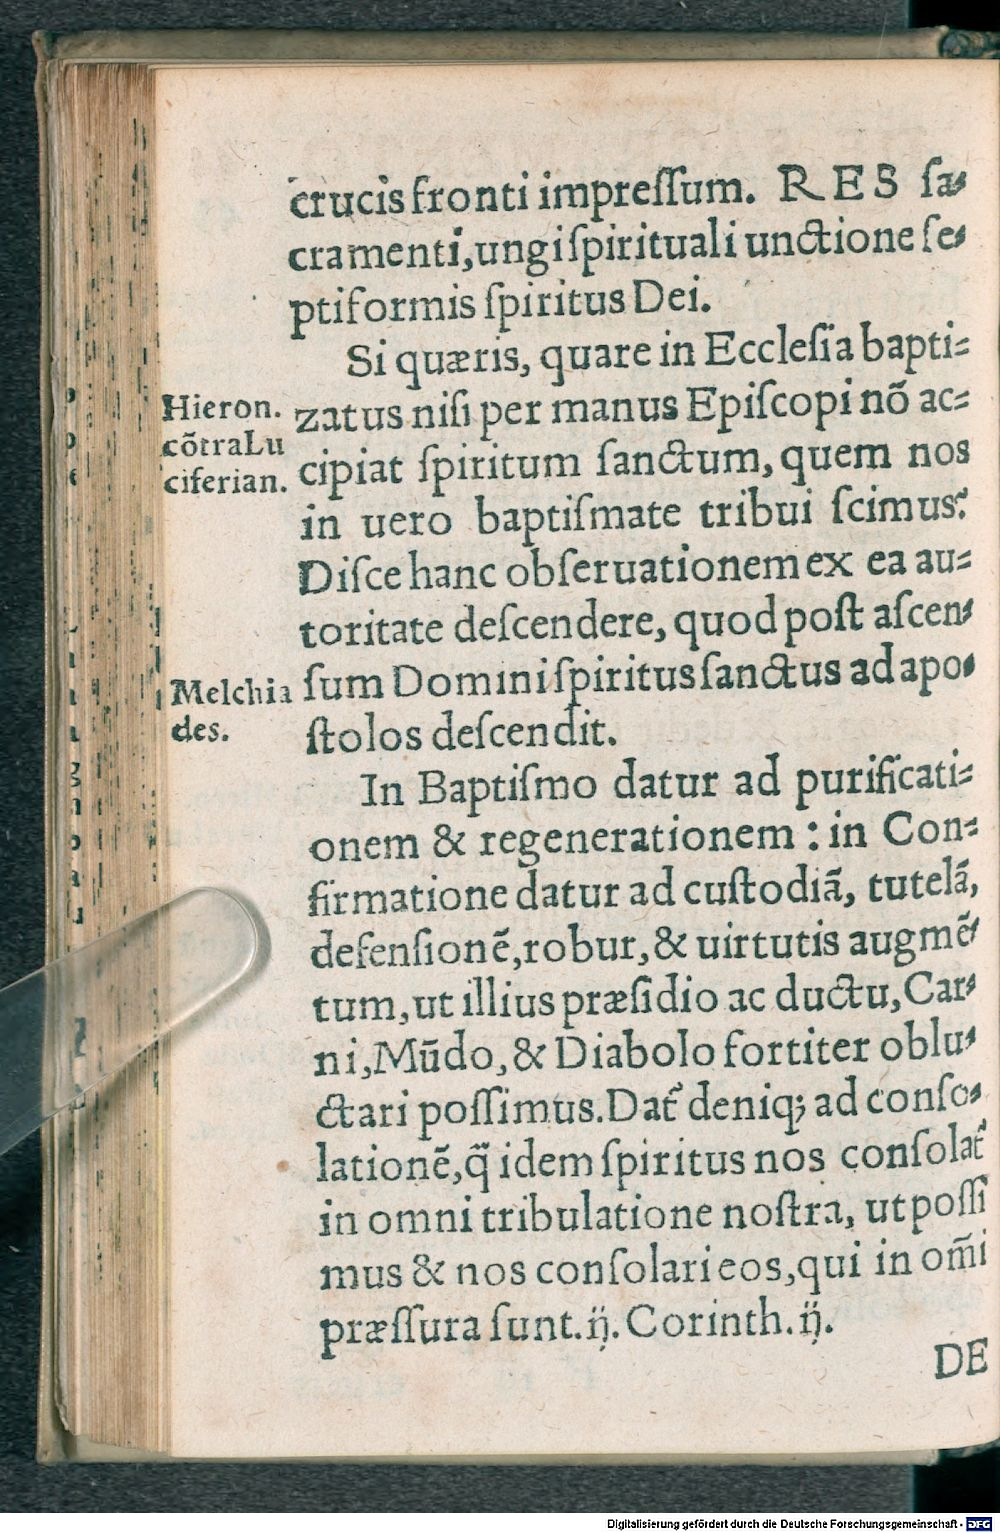 crucis fronti impreſſum. RES ſa-
cramenti, ungi ſpirituali unctione ſe-
ptiformis ſpiritus Dei.
Si quæris, quare in Eccleſia bapti-
Hieron.
zatus niſi per manus Epiſcopi nõ ac-
cõtraLu
cipiat ſpiritum ſanctum, quem nos
ciferian.
in uero baptiſmate tribui ſcimus?
Diſce hanc obſeruationem ex ea au-
toritate deſcendere, quod poſt aſcen-
ſum Domini ſpiritus ſanctus ad apo-
Melchia
des.
ſtolos deſcendit.
In Baptiſmo datur ad purificati-
onem & regenerationem : in Con-
firmatione datur ad cuſtodiã, tutelã,
defenſionẽ, robur, & uirtutis augmẽ-
tum, ut illius præſidio ac ductu, Car-
ni, Mũdo, & Diabolo fortiter oblu-
ctari poſſimus. Dat᷒ deniq; ad conſo-
lationẽ, q̃ idem ſpiritus nos conſolat᷒
in omni tribulatione noſtra, ut poſſi
mus & nos conſolari eos, qui in om̃i
præſſura ſunt. ij. Corinth. ij.
DE
Digitalisierung gefördert durch die Deutsche Forschungsgemeinschaft - DFG